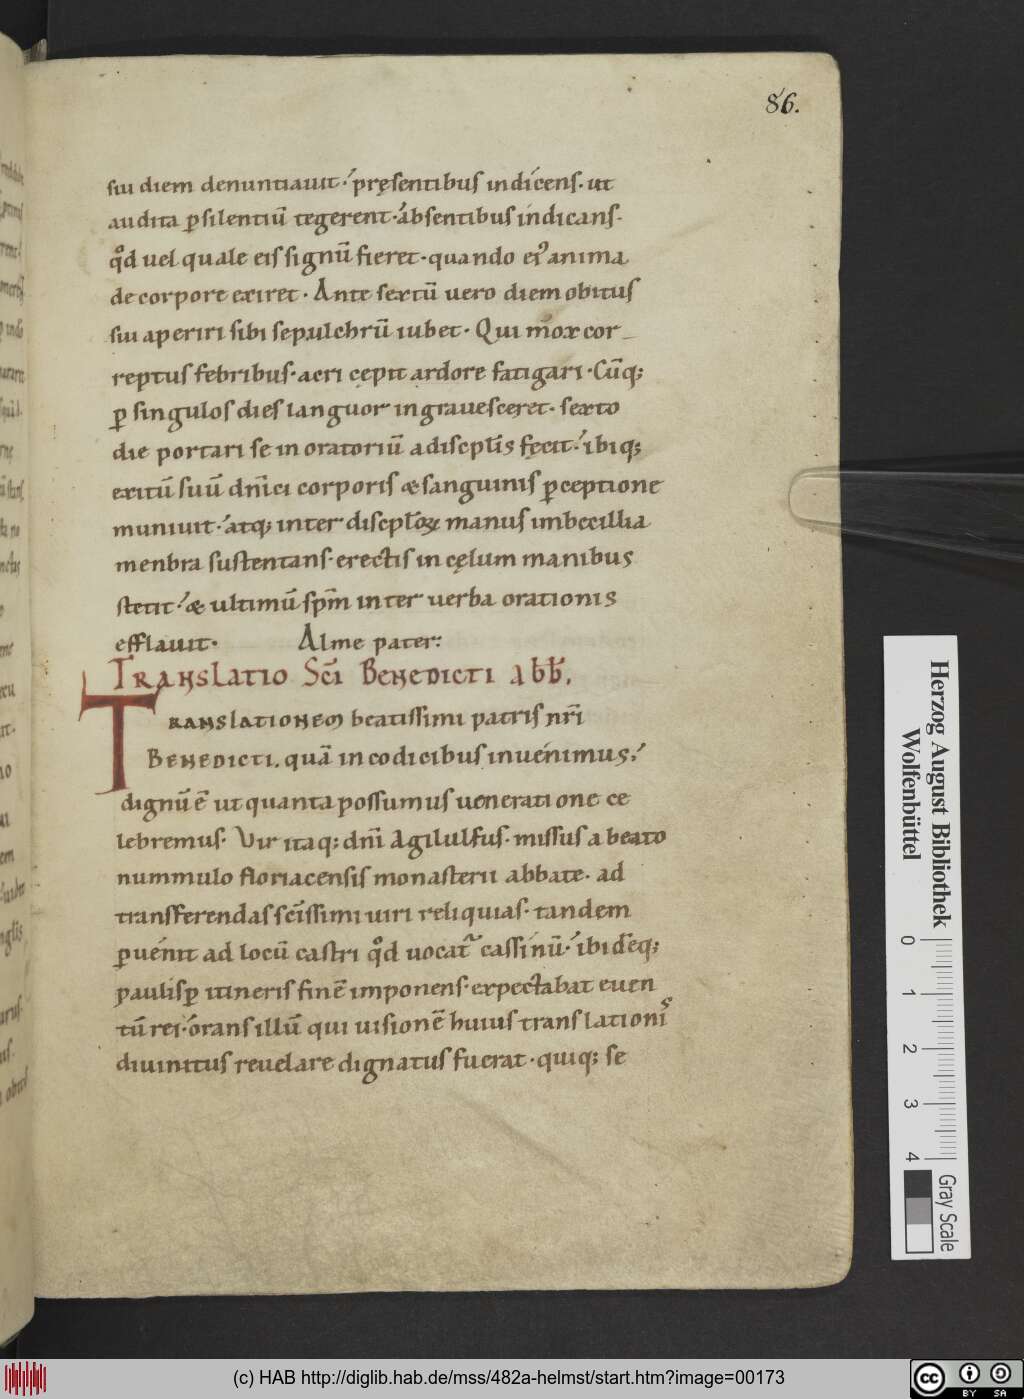 86.
sui diem denuntiauit. pręsentibus indicens. ut
audita p silentiū tegerent. absentibus indicans.
qd̊ uel quale eis signū fieret. quando ei᾿ anima
de corpore exiret. Ante sextū uero diem obitus
sui aperiri sibi sepulchrū iubet. Qui mox cor
reptus febribus. acri cępit ardore fatigari. Cūq;
ꝑ singulos dies languor ingrauesceret. sexto
die portari se in oratoriū a discpl̄is fęcit. ibiq;
exitū suū dn̄ici corporis & sanguinis ꝑceptione
muniuit. atq; inter discpl̄oꝝ manus imbecillia
menbra sustentans. erectis in cęlum manibus
stetit. & ultimū sp̄m inter uerba orationis
efflauit. Alme pater:
Translatio Sc̄i Benedicti abb̄.
Translationem beatissimi patris nr̄i
Benedicti. quā in codicibus inuenimus.
dignū ē ut quanta possumus ueneratione ce
lebremus. Vir itaq; dn̄i Agilulfus. missus a beato
nummulo floriacensis monasterii abbate. ad
transferendas sc̄issimi uiri reliquias. tandem
ꝑuenit ad locū castri qd̊ uocat᷑ cassinū. ibideq;
paulisꝑ itineris finē imponens. expectabat euen
tū rei. orans illū qui uisionē huius translationis
diuinitus reuelare dignatus fuerat. quiq; se
Herzog August Bibliothek
Wolfenbüttel
0 1 2 3 4
Gray Scale
(c) HAB http://diglib.hab.de/mss/482a-helmst/start.htm?image=00173
cc BY SA